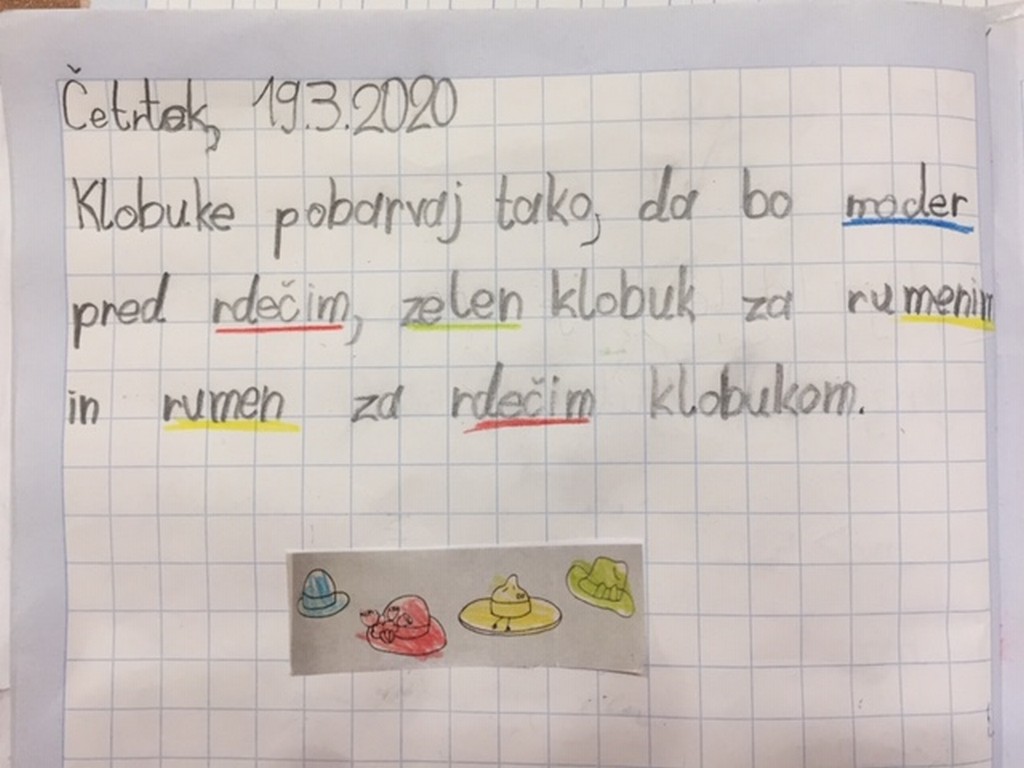 Četrtek, 19.3.2020
Klobuke pobarvaj tako, da bo moder
pred rdečim, zelen klobuk za rumenim
in rumen za rdečim klobukom.